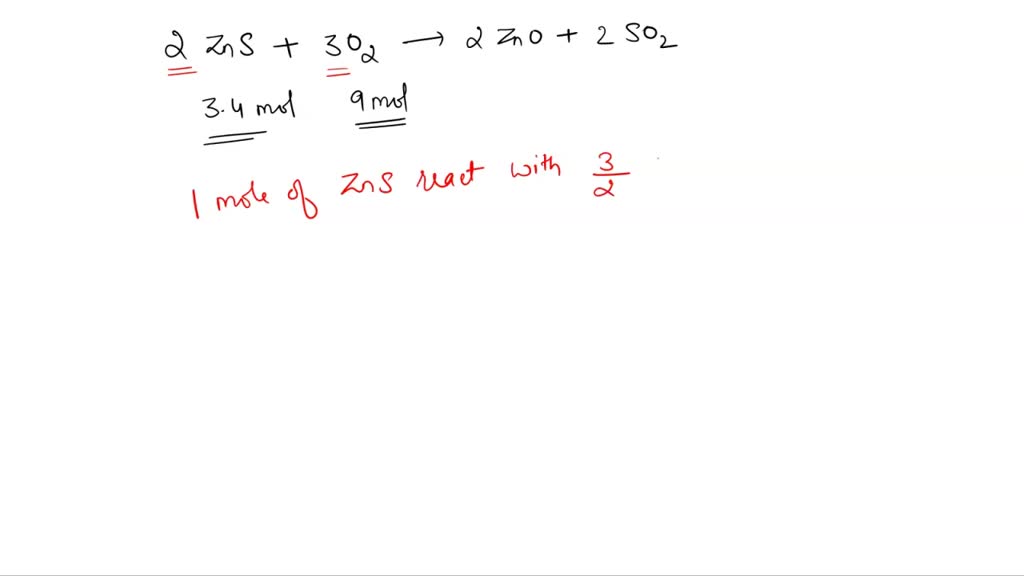 2 ZnS + 3O₂ → 2 ZnO + 2 SO₂
3.4 mol 9 mol
1 mole of ZnS react with 3/2